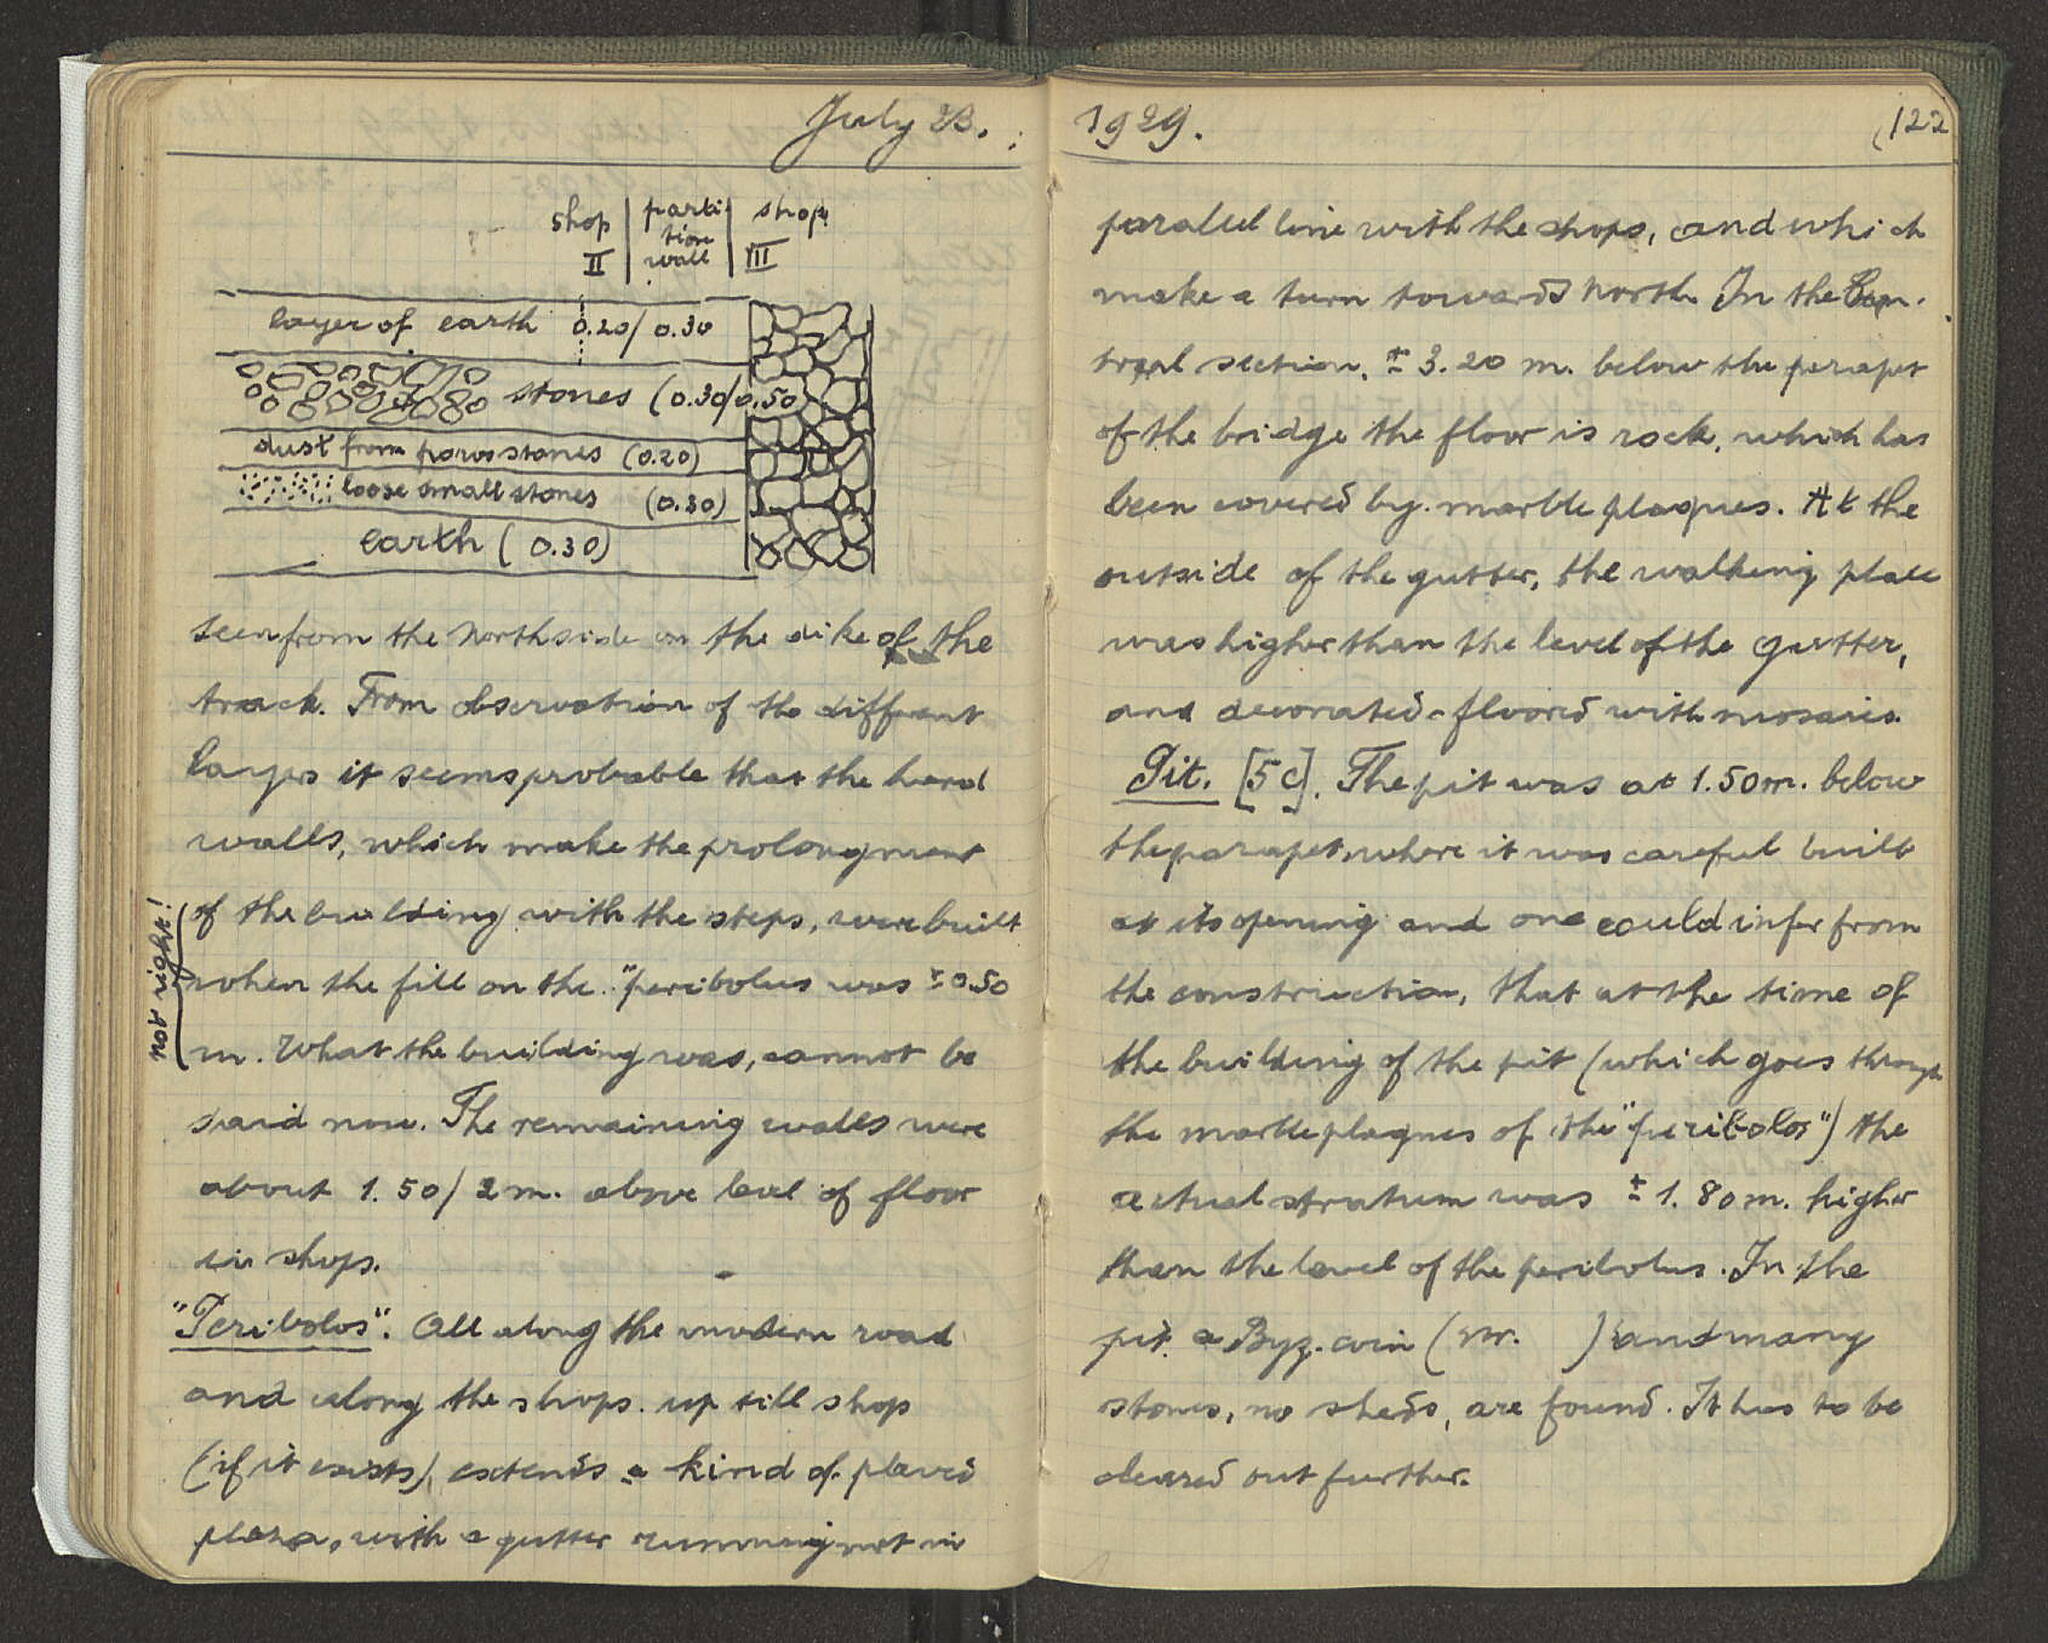 July 23.
shop | parti | shop
tion
II | wall | III
layer of earth 0.20/0.30
stones (0.30/0.50
dust from poros stones (0.20)
loose small stones (0.30)
earth (0.30)
seen from the North side on the dike of the
track. From observation of the different
layers it seems probable that the hard
walls, which make the prolongment
of the building with the steps, were built
when the fill on the "peribolus was ± 0.50
m. What the building was, cannot be
said now. The remaining walls were
about 1.50/2 m. above level of floor
in shops.
not right!
"Peribolos". All along the modern road
and along the shops up till shop
(if it exists) extends a kind of placed
plaza, with a gutter running not in
1929.
(122
parallel line with the shops, and which
make a turn towards North. In the Cen-
tral section, ± 3.20 m. below the parapet
of the bridge the floor is rock, which has
been covered by marble plaques. At the
outside of the gutter, the walking place
was higher than the level of the gutter,
and decorated - floored with mosaics.
Pit. [5C]. The pit was at 1.50 m. below
the parapet, where it was careful built
at its opening and one could infer from
the construction, that at the time of
the building of the pit (which goes through
the marble plaques of the "peribolos") the
actual stratum was ± 1.80 m. higher
than the level of the peribolus. In the
pit a Byz. coin (nr. ) and many
stones, no sheds, are found. It has to be
cleared out further.